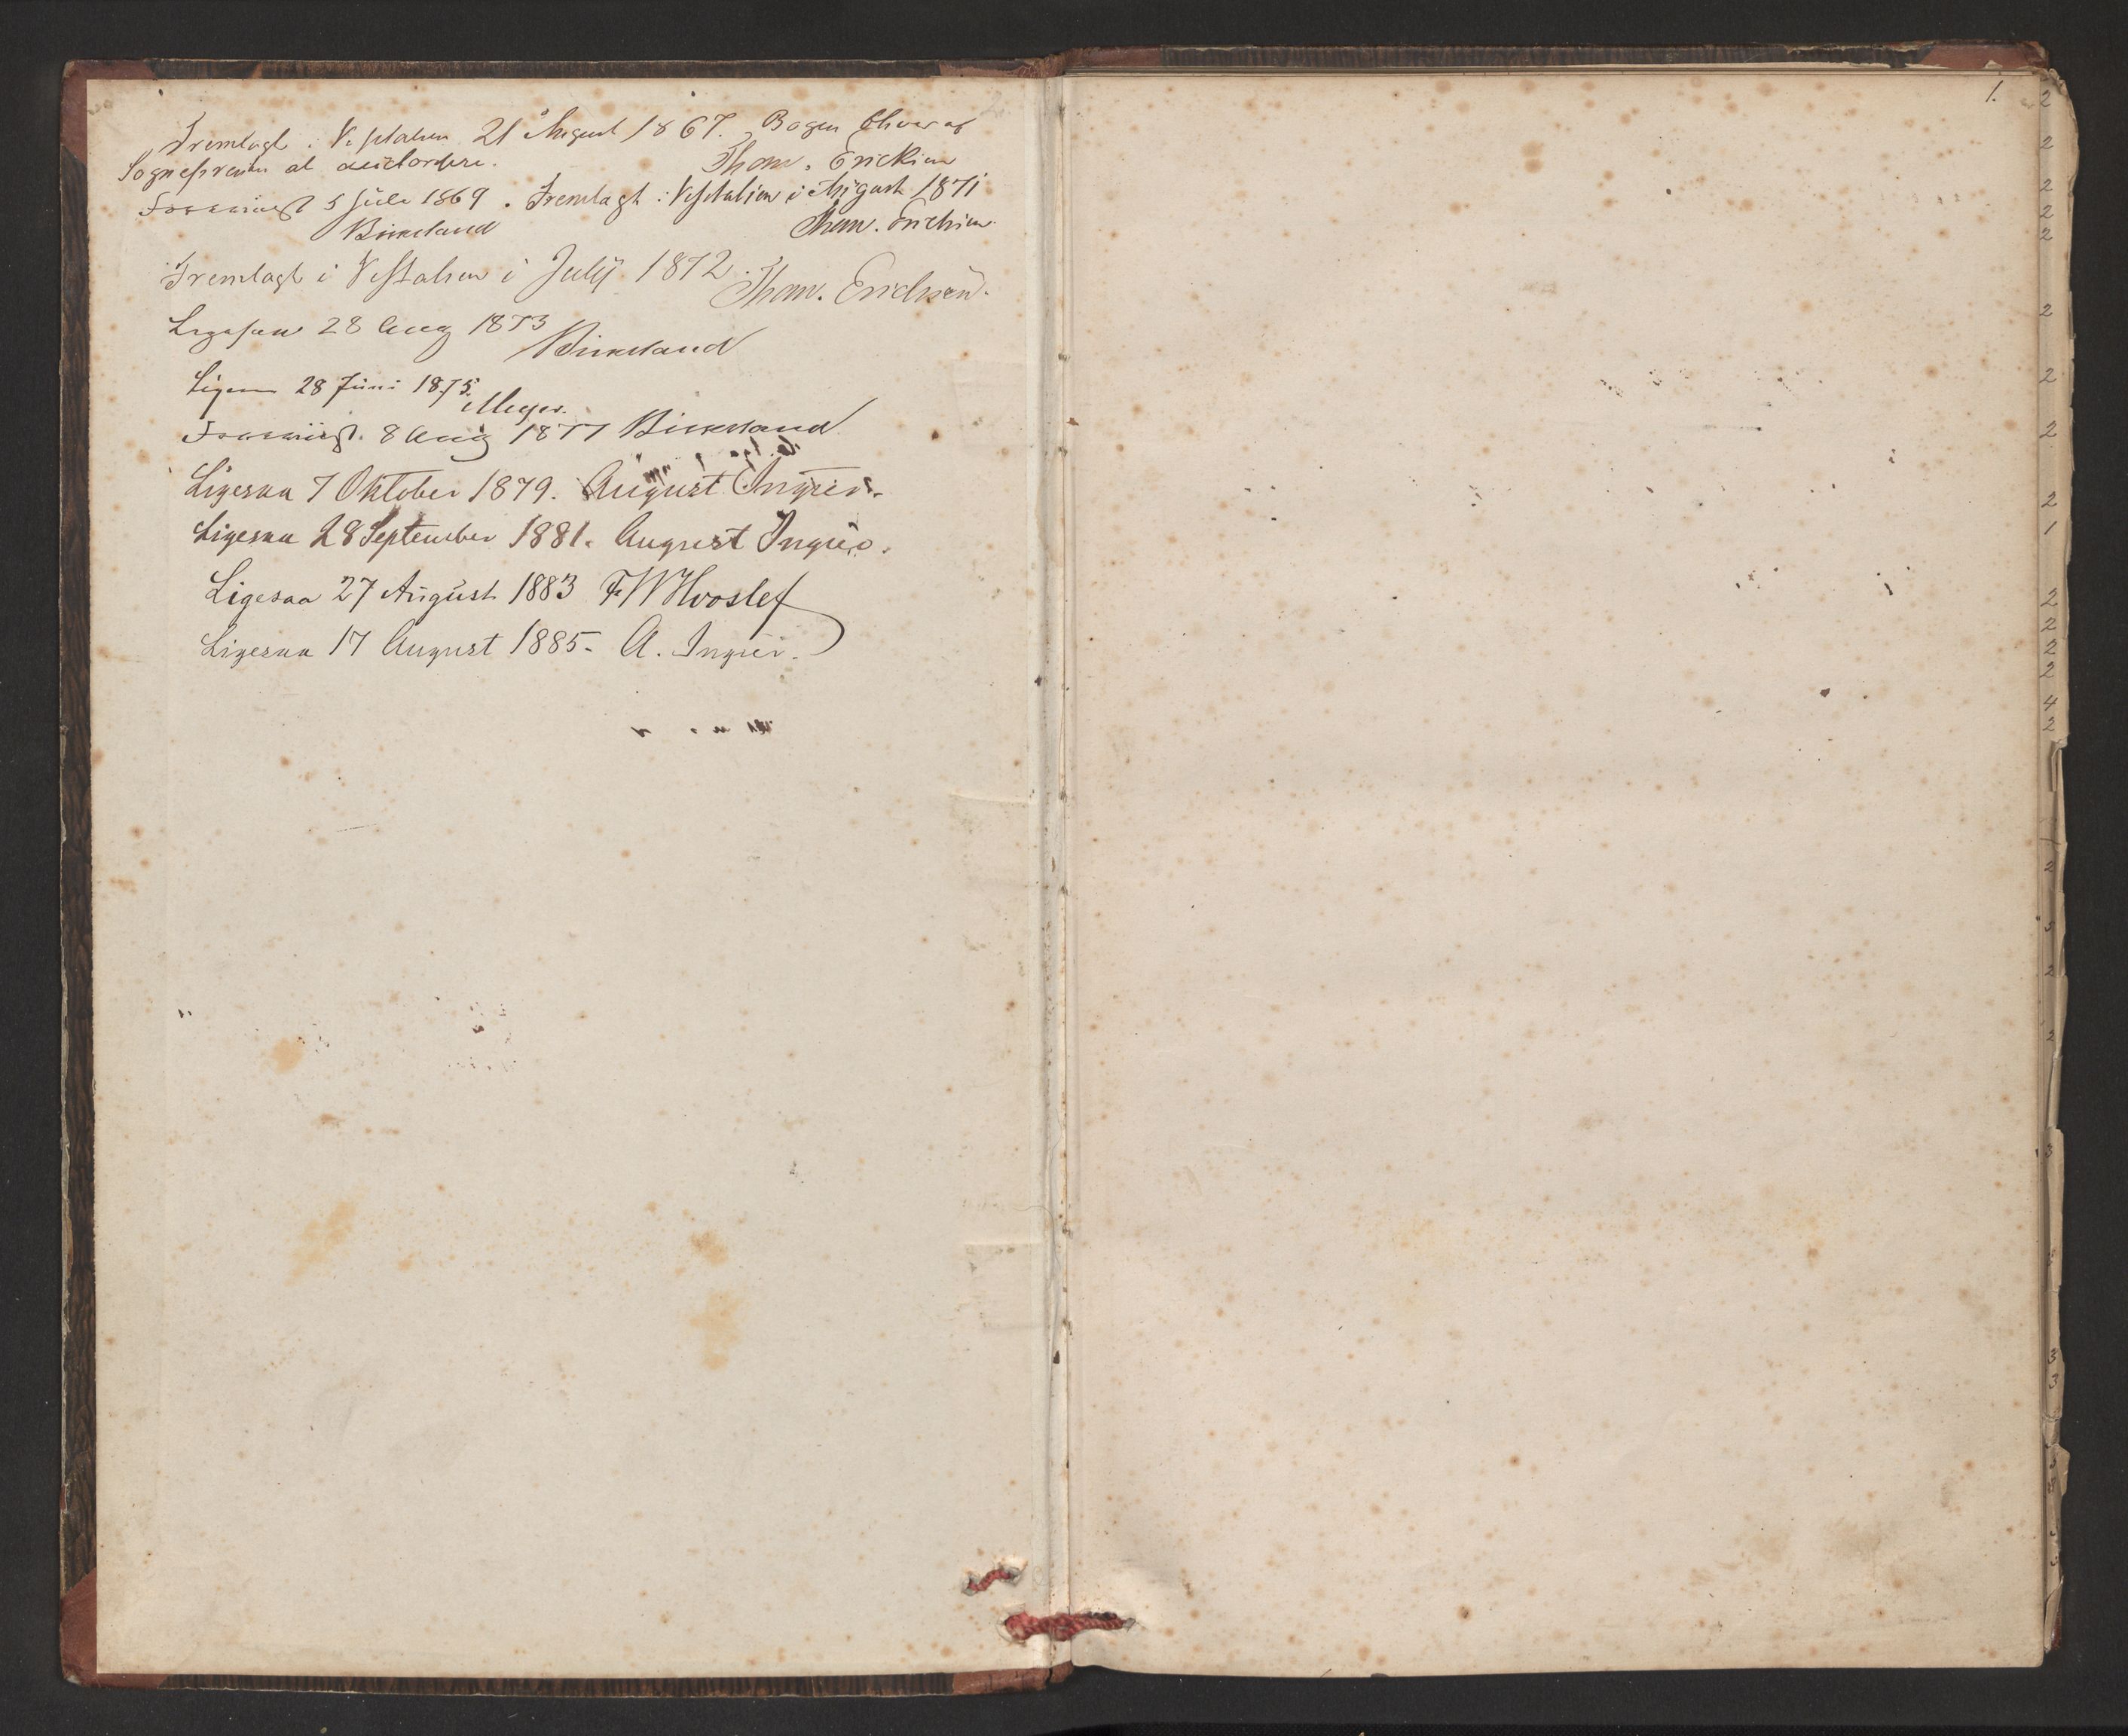 Fremlagt i Vestalsen 21 August 1867. Bogen bliver af
Sognepresten at autorisere. Thom. Erichsen
Foreviist 5 Juli 1869. Fremlagt i Vestalsen i August 1871
Birkeland Thom. Erichsen
Fremlagt i Vestalsen i July 1872. Thom. Erichsen.
Ligesaa 28 Aug 1873
Birkeland
Ligesaa 28 Juni 1875.
Meyer.
Foreviist. 8 Aug 1877 Birkeland
Ligesaa 7 Oktober 1879. August Ingier.
Ligesaa 28 September 1881. August Ingier.
Ligesaa 27 August 1883 FW Hvoslef
Ligesaa 17 August 1885. A. Ingier.
1.
2
2
2
2
2
2
2
2
2
1
2
2
2
2
4
2
2
2
2
3
3
3